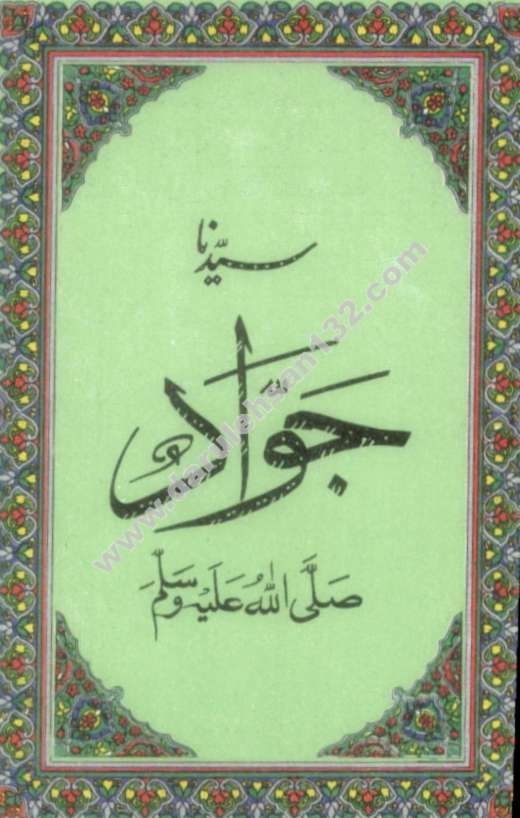 سيّدنا
جَوَّادٌ
صَلَّى اللهُ عَلَيْهِ وَسَلَّمَ
www.darulehsan132.com